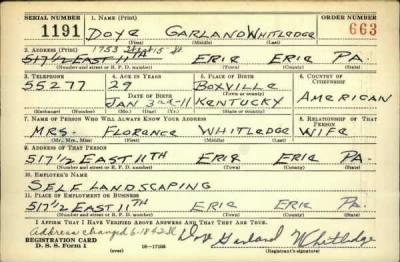 SERIAL NUMBER 1. NAME (Print) ORDER NUMBER
1191 DOYE GARLAND WHITLEDGE 663
(First) (Middle) (Last)
2. ADDRESS (Print) 1753 15 St
517½ EAST 11TH ERIE ERIE PA.
(Number and street or R. F. D. number) (Town) (County) (State)
3. TELEPHONE 4. AGE IN YEARS 5. PLACE OF BIRTH 6. COUNTRY OF CITIZENSHIP
55277 29 BOXVILLE
DATE OF BIRTH (Town or county)
JAN 3rd-11 KENTUCKY AMERICAN
(Exchange) (Number) (Mo.) (Day) (Yr.) (State or country)
7. NAME OF PERSON WHO WILL ALWAYS KNOW YOUR ADDRESS 8. RELATIONSHIP OF THAT PERSON
MRS. FLORENCE WHITLEDGE WIFE
(Mr., Mrs., Miss) (First) (Middle) (Last)
9. ADDRESS OF THAT PERSON
517½ EAST 11TH ERIE ERIE PA.
(Number and street or R. F. D. number) (Town) (County) (State)
10. EMPLOYER'S NAME
SELF LANDSCAPING
11. PLACE OF EMPLOYMENT OR BUSINESS
517½ EAST 11TH ERIE ERIE PA.
(Number and street or R. F. D. number) (Town) (County) (State)
I AFFIRM THAT I HAVE VERIFIED ABOVE ANSWERS AND THAT THEY ARE TRUE.
Address changed 6-18-42 Doye Garland Whitledge
REGISTRATION CARD
D. S. S. Form 1 (over) 16-17105 (Registrant's signature)